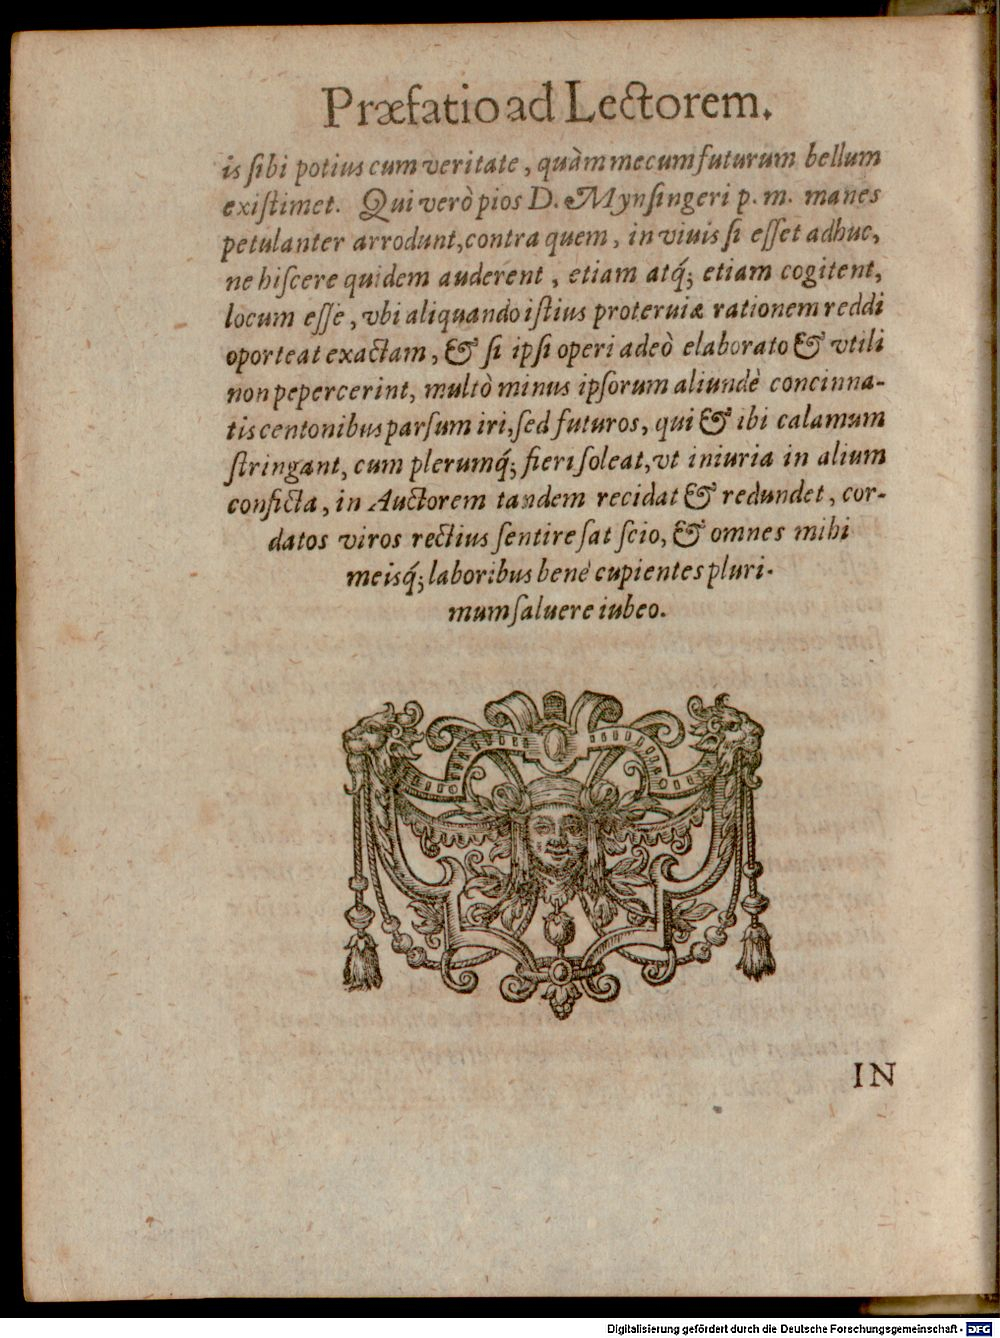 Præfatio ad Lectorem.
is ſibi potius cum veritate, quàm mecum futurum bellum
exiſtimet. Qui verò pios D. Mynſingeri p. m. manes
petulanter arrodunt, contra quem, in viuis ſi eſſet adhuc,
ne hiſcere quidem auderent, etiam atq́; etiam cogitent,
locum eſſe, vbi aliquando iſtius proteruiæ rationem reddi
oporteat exactam, & ſi ipſi operi adeò elaborato & vtili
non pepercerint, multò minus ipſorum aliundè concinna-
tis centonibus parſum iri, ſed futuros, qui & ibi calamum
ſtringant, cum plerumq́; fieri ſoleat, vt iniuria in alium
conficta, in Auctorem tandem recidat & redundet, cor-
datos viros rectius ſentire ſat ſcio, & omnes mihi
meisq́; laboribus benè cupientes pluri-
mum ſaluere iubeo.
IN
Digitalisierung gefördert durch die Deutsche Forschungsgemeinschaft - DFG